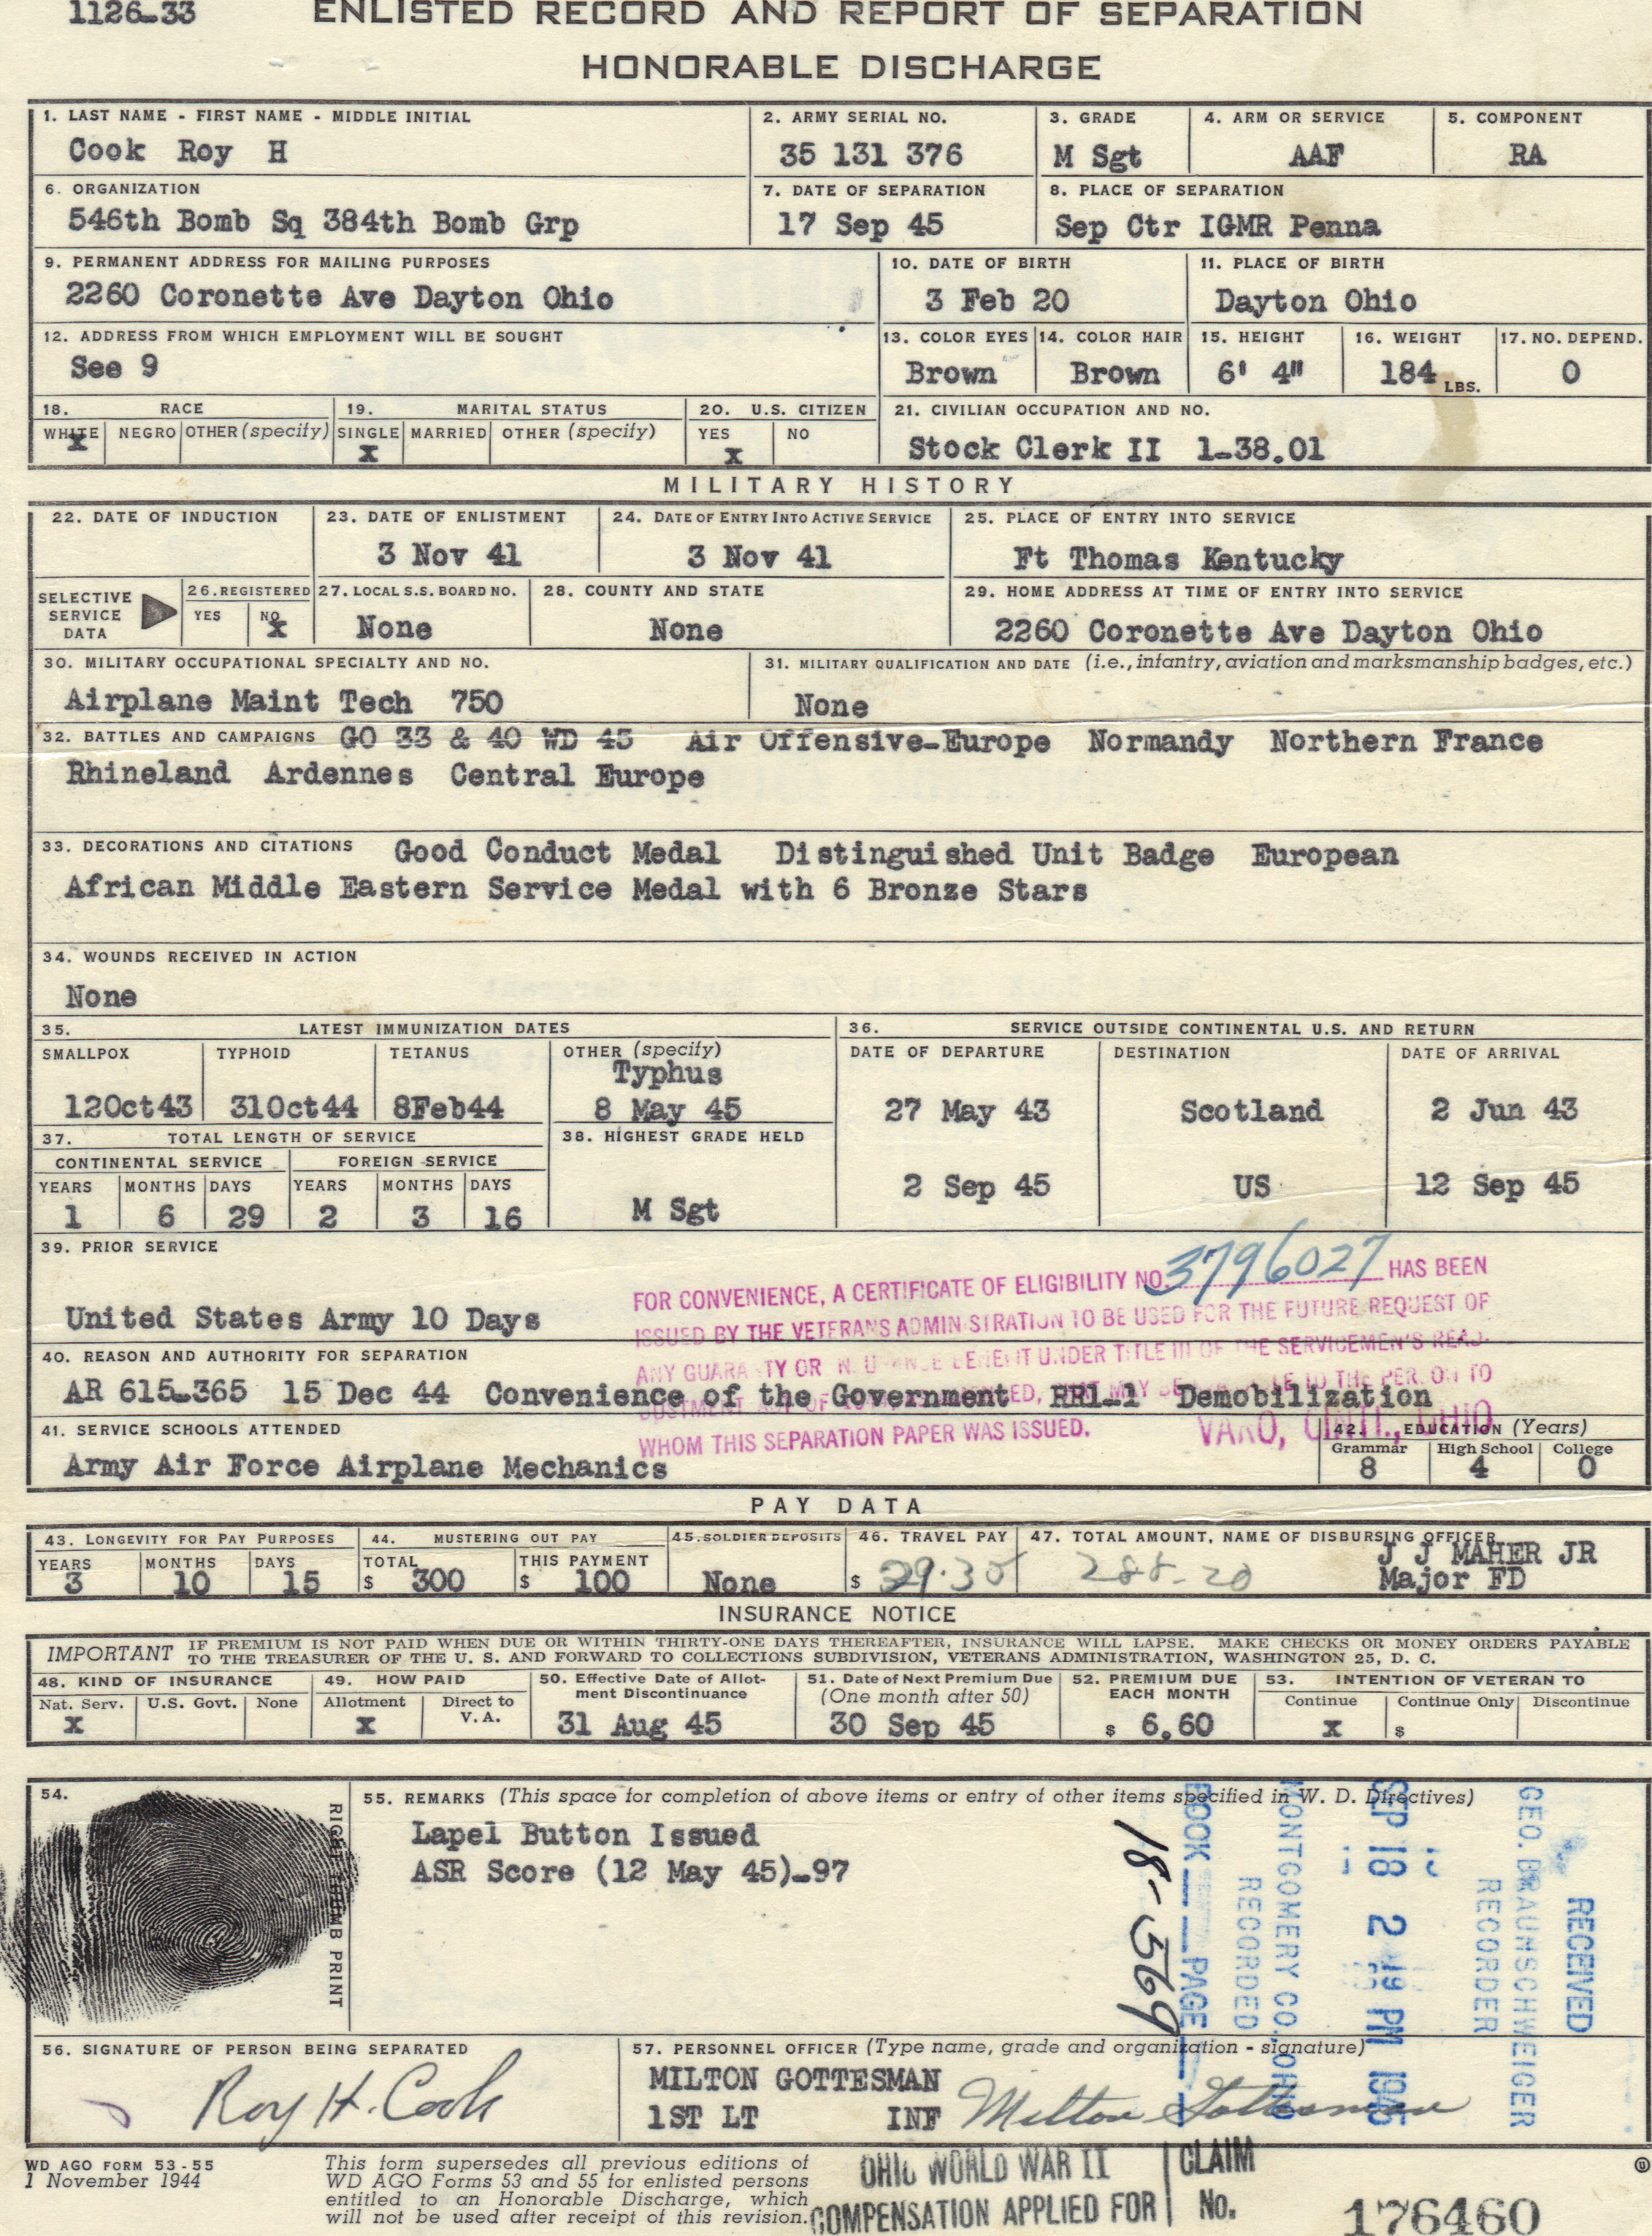 1126-33 ENLISTED RECORD AND REPORT OF SEPARATION
HONORABLE DISCHARGE
1. LAST NAME - FIRST NAME - MIDDLE INITIAL 2. ARMY SERIAL NO. 3. GRADE 4. ARM OR SERVICE 5. COMPONENT
Cook Roy H 35 131 376 M Sgt AAF RA
6. ORGANIZATION 7. DATE OF SEPARATION 8. PLACE OF SEPARATION
546th Bomb Sq 384th Bomb Grp 17 Sep 45 Sep Ctr IGMR Penna
9. PERMANENT ADDRESS FOR MAILING PURPOSES 10. DATE OF BIRTH 11. PLACE OF BIRTH
2260 Coronette Ave Dayton Ohio 3 Feb 20 Dayton Ohio
12. ADDRESS FROM WHICH EMPLOYMENT WILL BE SOUGHT 13. COLOR EYES 14. COLOR HAIR 15. HEIGHT 16. WEIGHT 17. NO. DEPEND.
See 9 Brown Brown 6' 4" 184 LBS. 0
18. RACE 19. MARITAL STATUS 20. U.S. CITIZEN 21. CIVILIAN OCCUPATION AND NO.
WHITE NEGRO OTHER (specify) SINGLE MARRIED OTHER (specify) YES NO
X X X Stock Clerk II 1-38.01
MILITARY HISTORY
22. DATE OF INDUCTION 23. DATE OF ENLISTMENT 24. DATE OF ENTRY INTO ACTIVE SERVICE 25. PLACE OF ENTRY INTO SERVICE
3 Nov 41 3 Nov 41 Ft Thomas Kentucky
SELECTIVE SERVICE DATA 26. REGISTERED 27. LOCAL S.S. BOARD NO. 28. COUNTY AND STATE 29. HOME ADDRESS AT TIME OF ENTRY INTO SERVICE
YES NO X None None 2260 Coronette Ave Dayton Ohio
30. MILITARY OCCUPATIONAL SPECIALTY AND NO. 31. MILITARY QUALIFICATION AND DATE (i.e., infantry, aviation and marksmanship badges, etc.)
Airplane Maint Tech 750 None
32. BATTLES AND CAMPAIGNS GO 33 & 40 WD 45 Air Offensive-Europe Normandy Northern France
Rhineland Ardennes Central Europe
33. DECORATIONS AND CITATIONS Good Conduct Medal Distinguished Unit Badge European
African Middle Eastern Service Medal with 6 Bronze Stars
34. WOUNDS RECEIVED IN ACTION
None
35. LATEST IMMUNIZATION DATES 36. SERVICE OUTSIDE CONTINENTAL U.S. AND RETURN
SMALLPOX TYPHOID TETANUS OTHER (specify) DATE OF DEPARTURE DESTINATION DATE OF ARRIVAL
Typhus
12Oct43 31Oct44 8Feb44 8 May 45 27 May 43 Scotland 2 Jun 43
37. TOTAL LENGTH OF SERVICE 38. HIGHEST GRADE HELD
CONTINENTAL SERVICE FOREIGN SERVICE
YEARS MONTHS DAYS YEARS MONTHS DAYS 2 Sep 45 US 12 Sep 45
1 6 29 2 3 16 M Sgt
39. PRIOR SERVICE
FOR CONVENIENCE, A CERTIFICATE OF ELIGIBILITY NO. 3796027 HAS BEEN
United States Army 10 Days
ISSUED BY THE VETERANS ADMINISTRATION TO BE USED FOR THE FUTURE REQUEST OF
40. REASON AND AUTHORITY FOR SEPARATION
ANY GUARANTY OR INSURANCE BENEFIT UNDER TITLE III OF THE SERVICEMEN'S READ-
AR 615-365 15 Dec 44 Convenience of the Government RR1-1 Demobilization
41. SERVICE SCHOOLS ATTENDED 42. EDUCATION (Years)
WHOM THIS SEPARATION PAPER WAS ISSUED. VARO, CINTI., OHIO
Grammar High School College
Army Air Force Airplane Mechanics 8 4 0
PAY DATA
43. LONGEVITY FOR PAY PURPOSES 44. MUSTERING OUT PAY 45. SOLDIER DEPOSITS 46. TRAVEL PAY 47. TOTAL AMOUNT, NAME OF DISBURSING OFFICER
YEARS MONTHS DAYS TOTAL THIS PAYMENT J J MAHER JR
3 10 15 $ 300 $ 100 None $ 288.20 Major FD
INSURANCE NOTICE
IMPORTANT IF PREMIUM IS NOT PAID WHEN DUE OR WITHIN THIRTY-ONE DAYS THEREAFTER, INSURANCE WILL LAPSE. MAKE CHECKS OR MONEY ORDERS PAYABLE
TO THE TREASURER OF THE U. S. AND FORWARD TO COLLECTIONS SUBDIVISION, VETERANS ADMINISTRATION, WASHINGTON 25, D. C.
48. KIND OF INSURANCE 49. HOW PAID 50. Effective Date of Allotment Discontinuance 51. Date of Next Premium Due (One month after 50) 52. PREMIUM DUE EACH MONTH 53. INTENTION OF VETERAN TO
Nat. Serv. U.S. Govt. None Allotment Direct to V. A. Continue Continue Only Discontinue
X X 31 Aug 45 30 Sep 45 $ 6.60 X $
54. RIGHT THUMB PRINT
55. REMARKS (This space for completion of above items or entry of other items specified in W. D. Directives)
Lapel Button Issued
ASR Score (12 May 45)-97
18-569
BOOK PAGE
RECORDED
MONTGOMERY CO., OHIO
SEP 18 2 19 PM 1945
RECORDER
GEO. BRAUNSCHWEIGER
RECEIVED
56. SIGNATURE OF PERSON BEING SEPARATED 57. PERSONNEL OFFICER (Type name, grade and organization - signature)
Roy H. Cook MILTON GOTTESMAN Milton Gottesman
1ST LT INF
WD AGO FORM 53-55
1 November 1944
This form supersedes all previous editions of
WD AGO Forms 53 and 55 for enlisted persons
entitled to an Honorable Discharge, which
will not be used after receipt of this revision.
OHIO WORLD WAR II CLAIM
COMPENSATION APPLIED FOR No. 176460